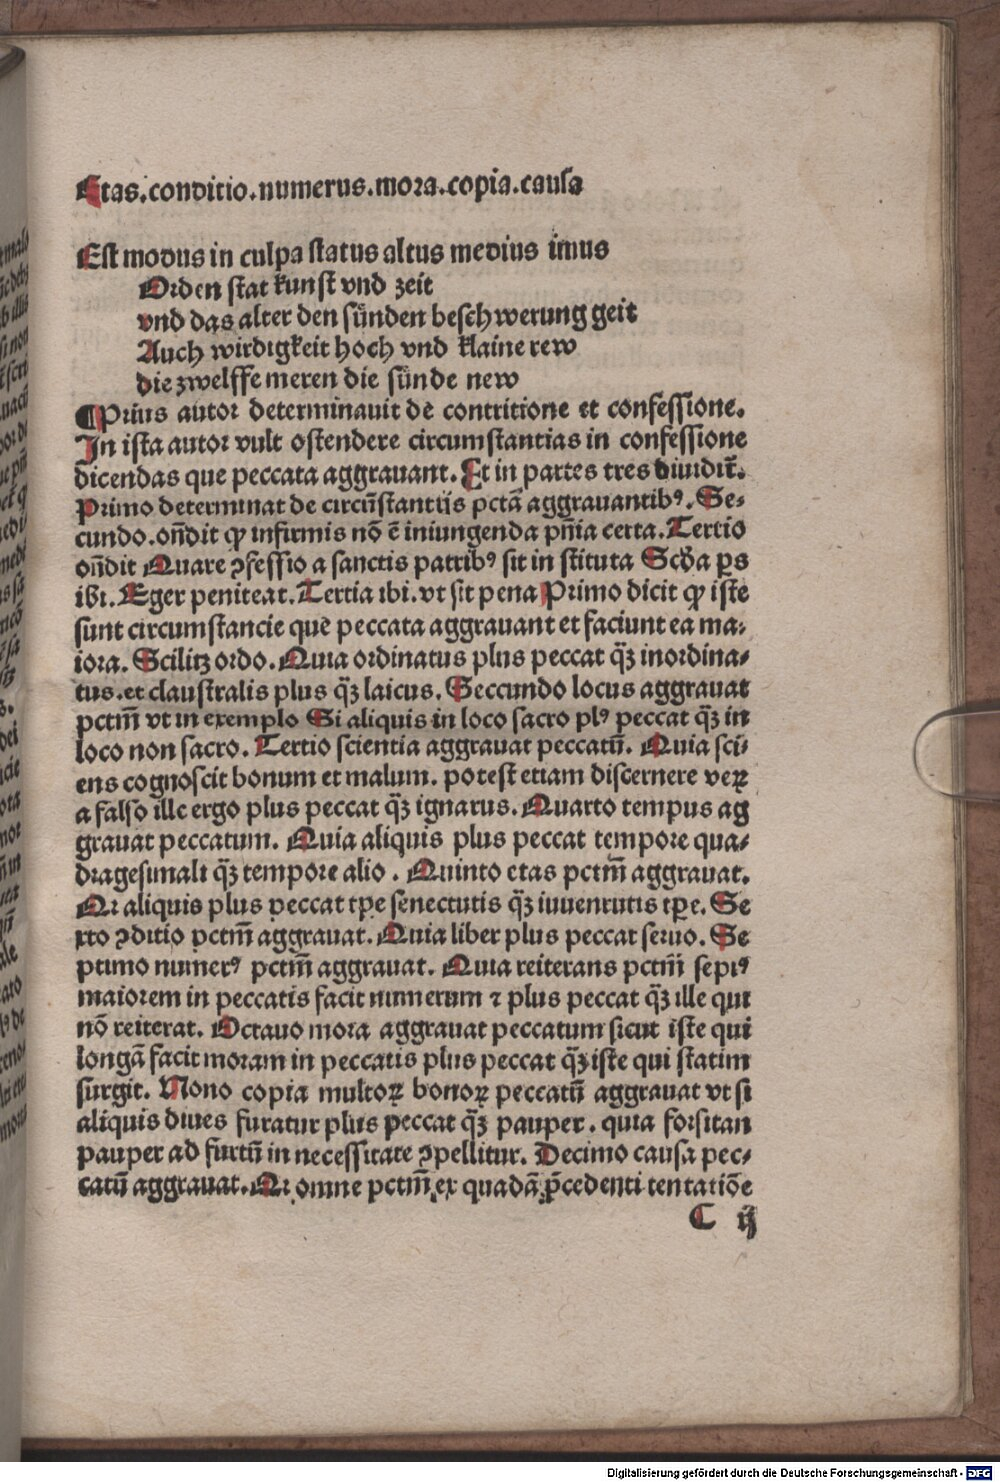 Etas.conditio.numerus.mora.copia.causa
Est modus in culpa status altus medius imus
Orden stat kunst vnd zeit
vnd das alter den sünden beschwerung geit
Auch wirdigkeit hoch vnd klaine rew
die zwelffe meren die sünde new
¶Prius autor determinauit de contritione et confessione.
In ista autor vult ostendere circumstantias in confessione
dicendas que peccata aggrauant. Et in partes tres diuidit̃.
Primo determinat de circũstantijs pctã aggrauantibꝰ. Se⸗
cundo.oñdit ꝙ infirmis nõ ẽ iniungenda pñia certa. Tertio
oñdit Quare ꝯfessio a sanctis patribꝰ sit in stituta Scḋa ps
ibi. Eger peniteat. Tertia ibi. vt sit pena Primo dicit ꝙ iste
sunt circumstancie que peccata aggrauant et faciunt ea ma⸗
iora. Scilitz ordo. Quia ordinatus plus peccat qᷓꝫ inordina⸗
tus.et claustralis plus qᷓꝫ laicus. Seccundo locus aggrauat
pctm̃ vt in exemplo Si aliquis in loco sacro plꝰ peccat qᷓꝫ in
loco non sacro. Tertio scientia aggrauat peccatũ. Quia sci⸗
ens cognoscit bonum et malum. potest etiam discernere veꝝ
a falso ille ergo plus peccat qᷓꝫ ignarus. Quarto tempus ag
grauat peccatum. Quia aliquis plus peccat tempore qua⸗
dragesimali qᷓꝫ tempore alio . Quinto etas pctm̃ aggrauat.
Qr aliquis plus peccat tp̱e senectutis qᷓꝫ iuuentutis tp̱e. Se
xto ꝯditio pctm̃ aggrauat. Quia liber plus peccat seruo. Se
ptimo numerꝰ pctm̃ aggrauat. Quia reiterans pctm̃ sepiꝰ
maiorem in peccatis facit numerum ⁊ plus peccat qᷓꝫ ille qui
nõ reiterat. Octauo mora aggrauat peccatum sicut iste qui
longã facit moram in peccatis plus peccat qᷓꝫ iste qui statim
surgit. Nono copia multoꝝ bonoꝝ peccatũ aggrauat vt si
aliquis diues furatur plus peccat qᷓꝫ pauper . quia forsitan
pauper ad furtũ in necessitate ꝯpellitur. Decimo causa pec⸗
catũ aggrauat. Qr omne pctm̃ ex quadã p̃cedenti tentatiõe
C ij
Digitalisierung gefördert durch die Deutsche Forschungsgemeinschaft - DFG